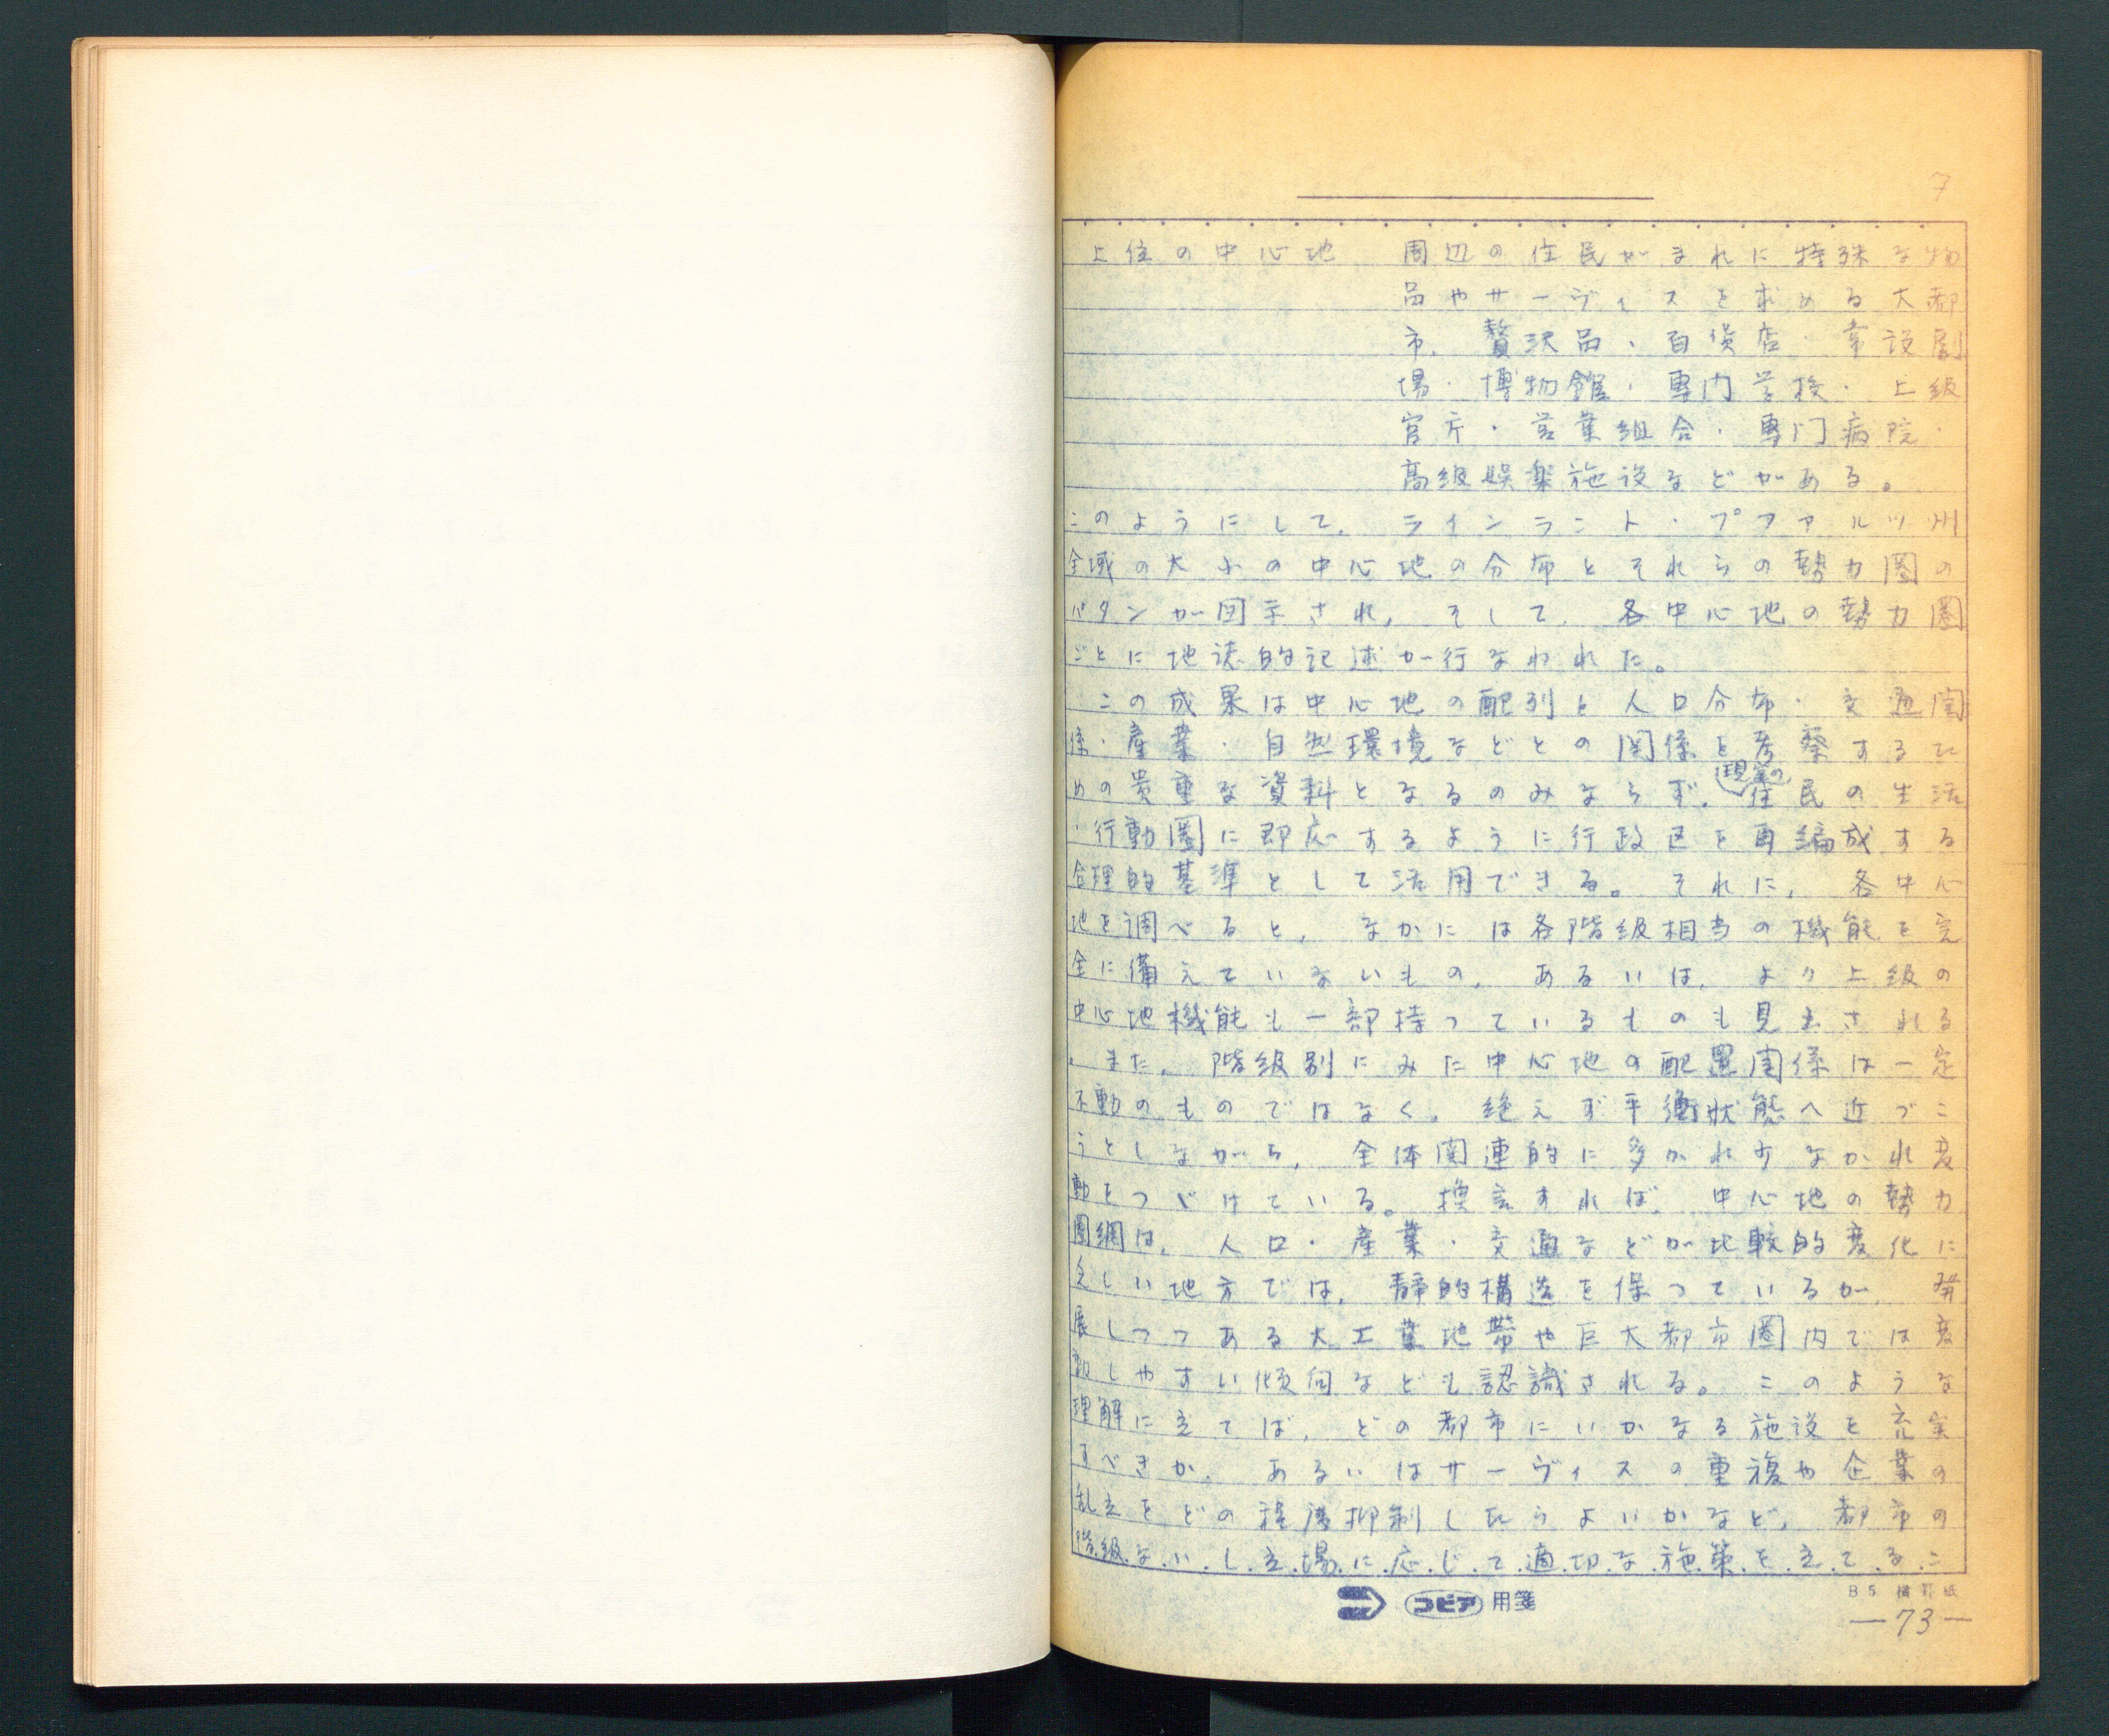 7
上位の中心地　周辺の住民がまれに特殊な物
品やサーヴィスを求める大都
市。贅沢品・百貨店・常設劇
場・博物館・専門学校・上級
官庁・営業組合・専門病院・
高級娯楽施設などがある。
このようにして，ラインラント・プファルツ州
全域の大小の中心地の分布とそれらの勢力圏の
パタンが図示され，そして，各中心地の勢力圏
ごとに地誌的記述が行なわれた。
この成果は中心地の配列と人口分布・交通関
係・産業・自然環境などとの関係を考察するた
めの貴重な資料となるのみならず，現実の住民の生活
・行動圏に即応するように行政区を再編成する
合理的基準として活用できる。それに，各中心
地を調べると，なかには各階級相当の機能を完
全に備えていないもの，あるいは，より上級の
中心地機能も一部持っているものも見出される
。また，階級別にみた中心地の配置関係は一定
不動のものではなく，絶えず平衡状態へ近づこ
うとしながら，全体関連的に多かれ少なかれ変
動をつづけている。換言すれば，中心地の勢力
圏網は，人口・産業・交通などが比較的変化に
乏しい地方では，静的構造を保っているが，発
展しつつある大工業地帯や巨大都市圏内では変
動しやすい傾向なども認識される。このような
理解に立てば，どの都市にいかなる施設を充実
すべきか，あるいはサーヴィスの重複や企業の
乱立をどの程度抑制したらよいかなど，都市の
階級ないし立場に応じて適切な施策を立てるこ
コピア 用箋
B5 横罫紙
—73—